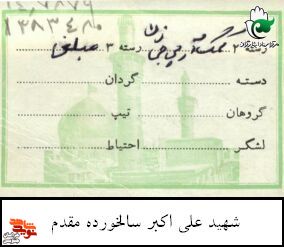 ۱۳۸۳۴۸۰
رسته ۲ کمک آرپی‌جی زن رسته ۳ مبلغ
دسته گردان
گروهان تیپ
لشگر احتیاط
شهید علی اکبر سالخورده مقدم